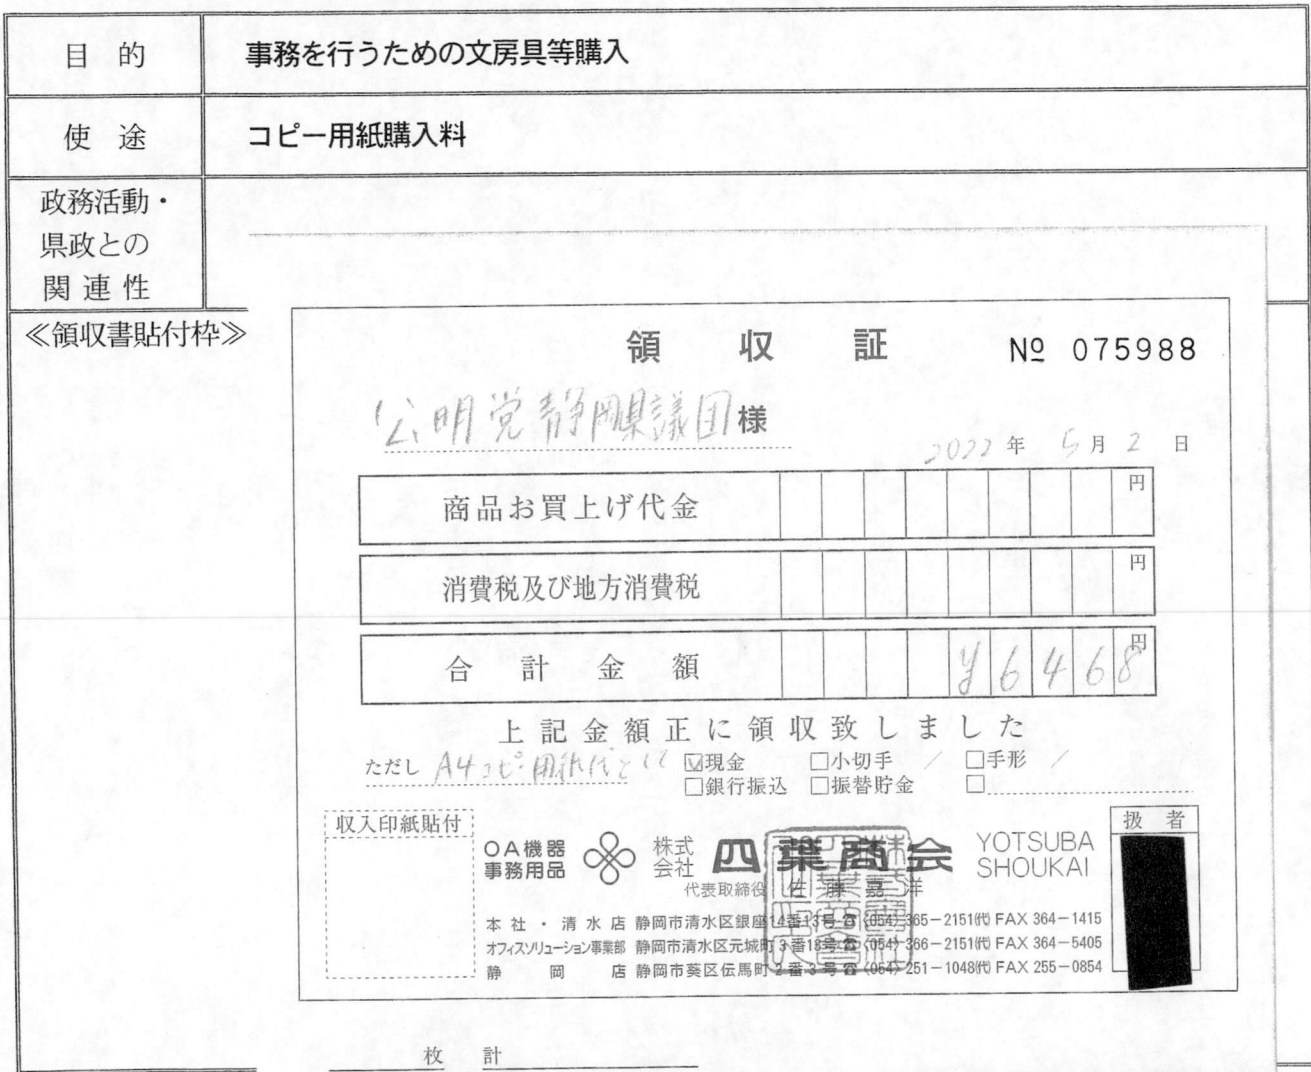 目 的 事務を行うための文房具等購入
使 途 コピー用紙購入料
政務活動・
県政との
関 連 性
≪領収書貼付枠≫
領 収 証 № 075988
公明党静岡県議団様
2022年 5月 2日
商品お買上げ代金 円
消費税及び地方消費税 円
合 計 金 額 ¥6468円
上記金額正に領収致しました
ただし A4コピー用紙代として ☑現金 □小切手 / □手形 /
□銀行振込 □振替貯金 □
収入印紙貼付
扱 者
OA機器
事務用品
株式
会社
四葉商会
YOTSUBA
SHOUKAI
代表取締役 佐藤嘉洋
本社・清水店 静岡市清水区銀座14番13号 ☎(054)365-2151㈹ FAX 364-1415
オフィスソリューション事業部 静岡市清水区元城町3番18号 ☎(054)366-2151㈹ FAX 364-5405
静岡店 静岡市葵区伝馬町2番3号 ☎(054)251-1048㈹ FAX 255-0854
枚 計